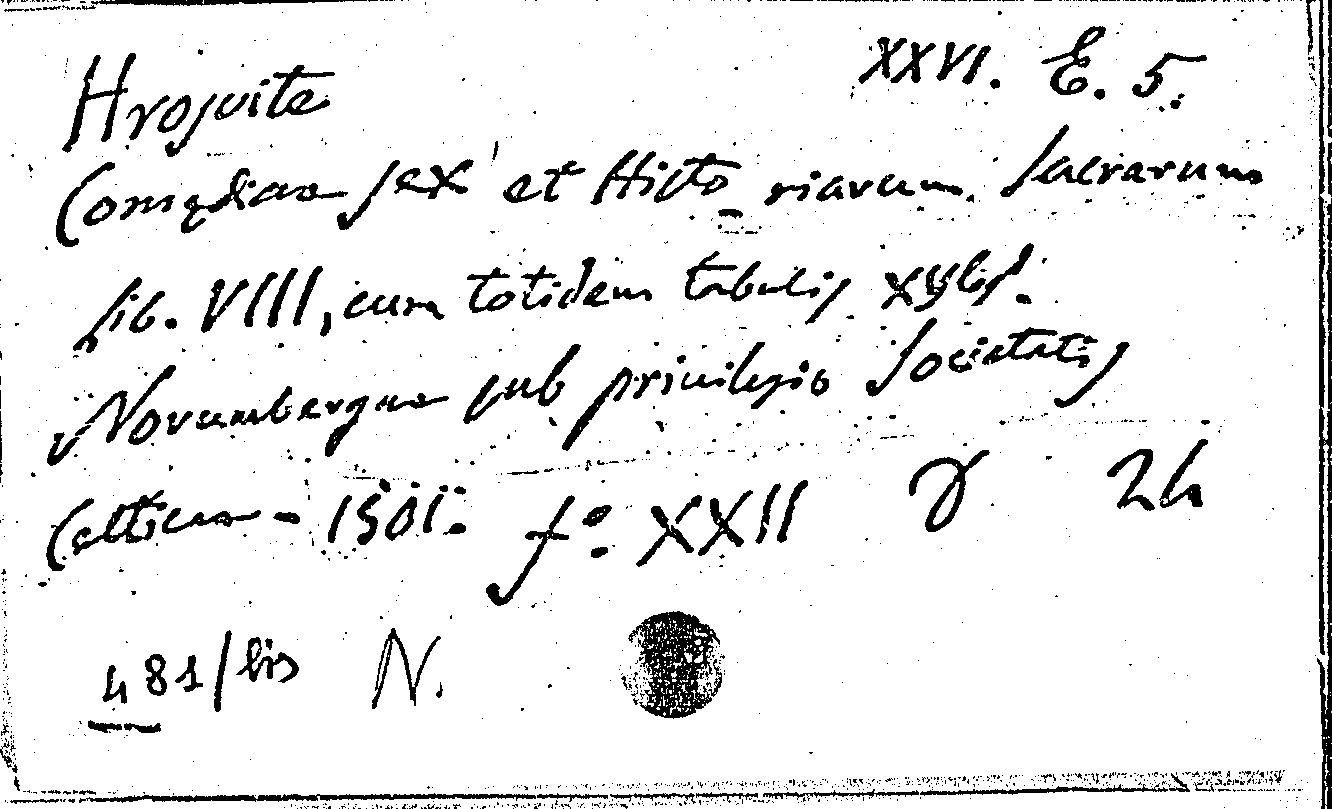 Hrosvite XXVI. E. 5.
Comędiae sex et Histo_riarum Sacrarum
lib. VIII, cum totidem tabulis xylis.
Norumbergae sub privilegio Societatis
Celticae - 1501. fº. XXII 24
481/bis N.